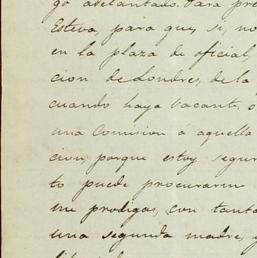 go adelantado. Para pre
Esteva, para que si, no
en la plaza de oficial,
cion de Londres, de la
cuando haya vacante, o
una Comision á aquella
cion, porque estoy segur
to puede procurarm
me prodigas, con tanta
una segunda madre, y